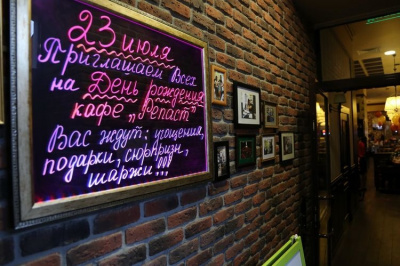 23 июля
Приглашаем Всех
на День рождения
кафе „Репаст"
Вас ждут: угощения,
подарки, сюрприз,
шаржи...